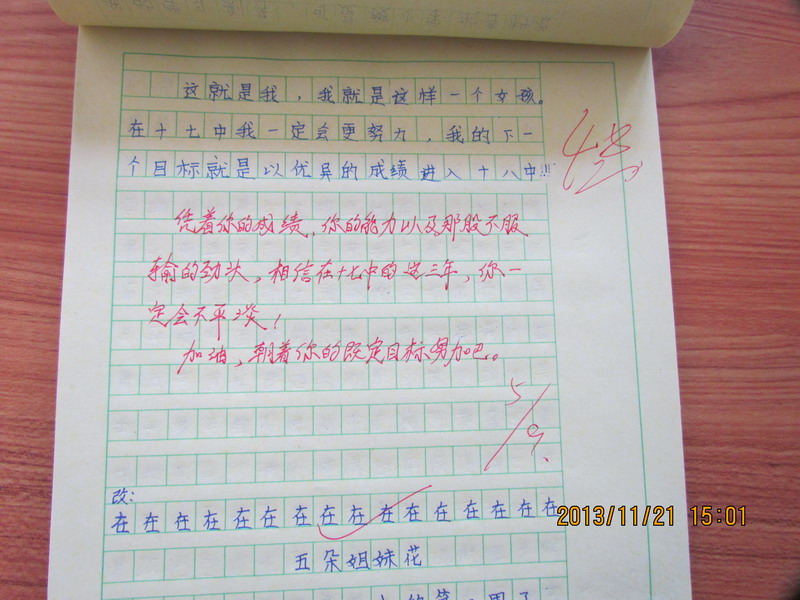 这就是我，我就是这样一个女孩。
在十七中我一定会更努力，我的下一
个目标就是以优异的成绩进入十八中!!!
凭着你的成绩，你的能力以及那股不服
输的劲头，相信在十七中的这三年，你一
定会不平淡！
加油，朝着你的既定目标努力吧。
5/9.
改：
在在在在在在在在在在在在在在在
五朵姐妹花
2013/11/21 15:01